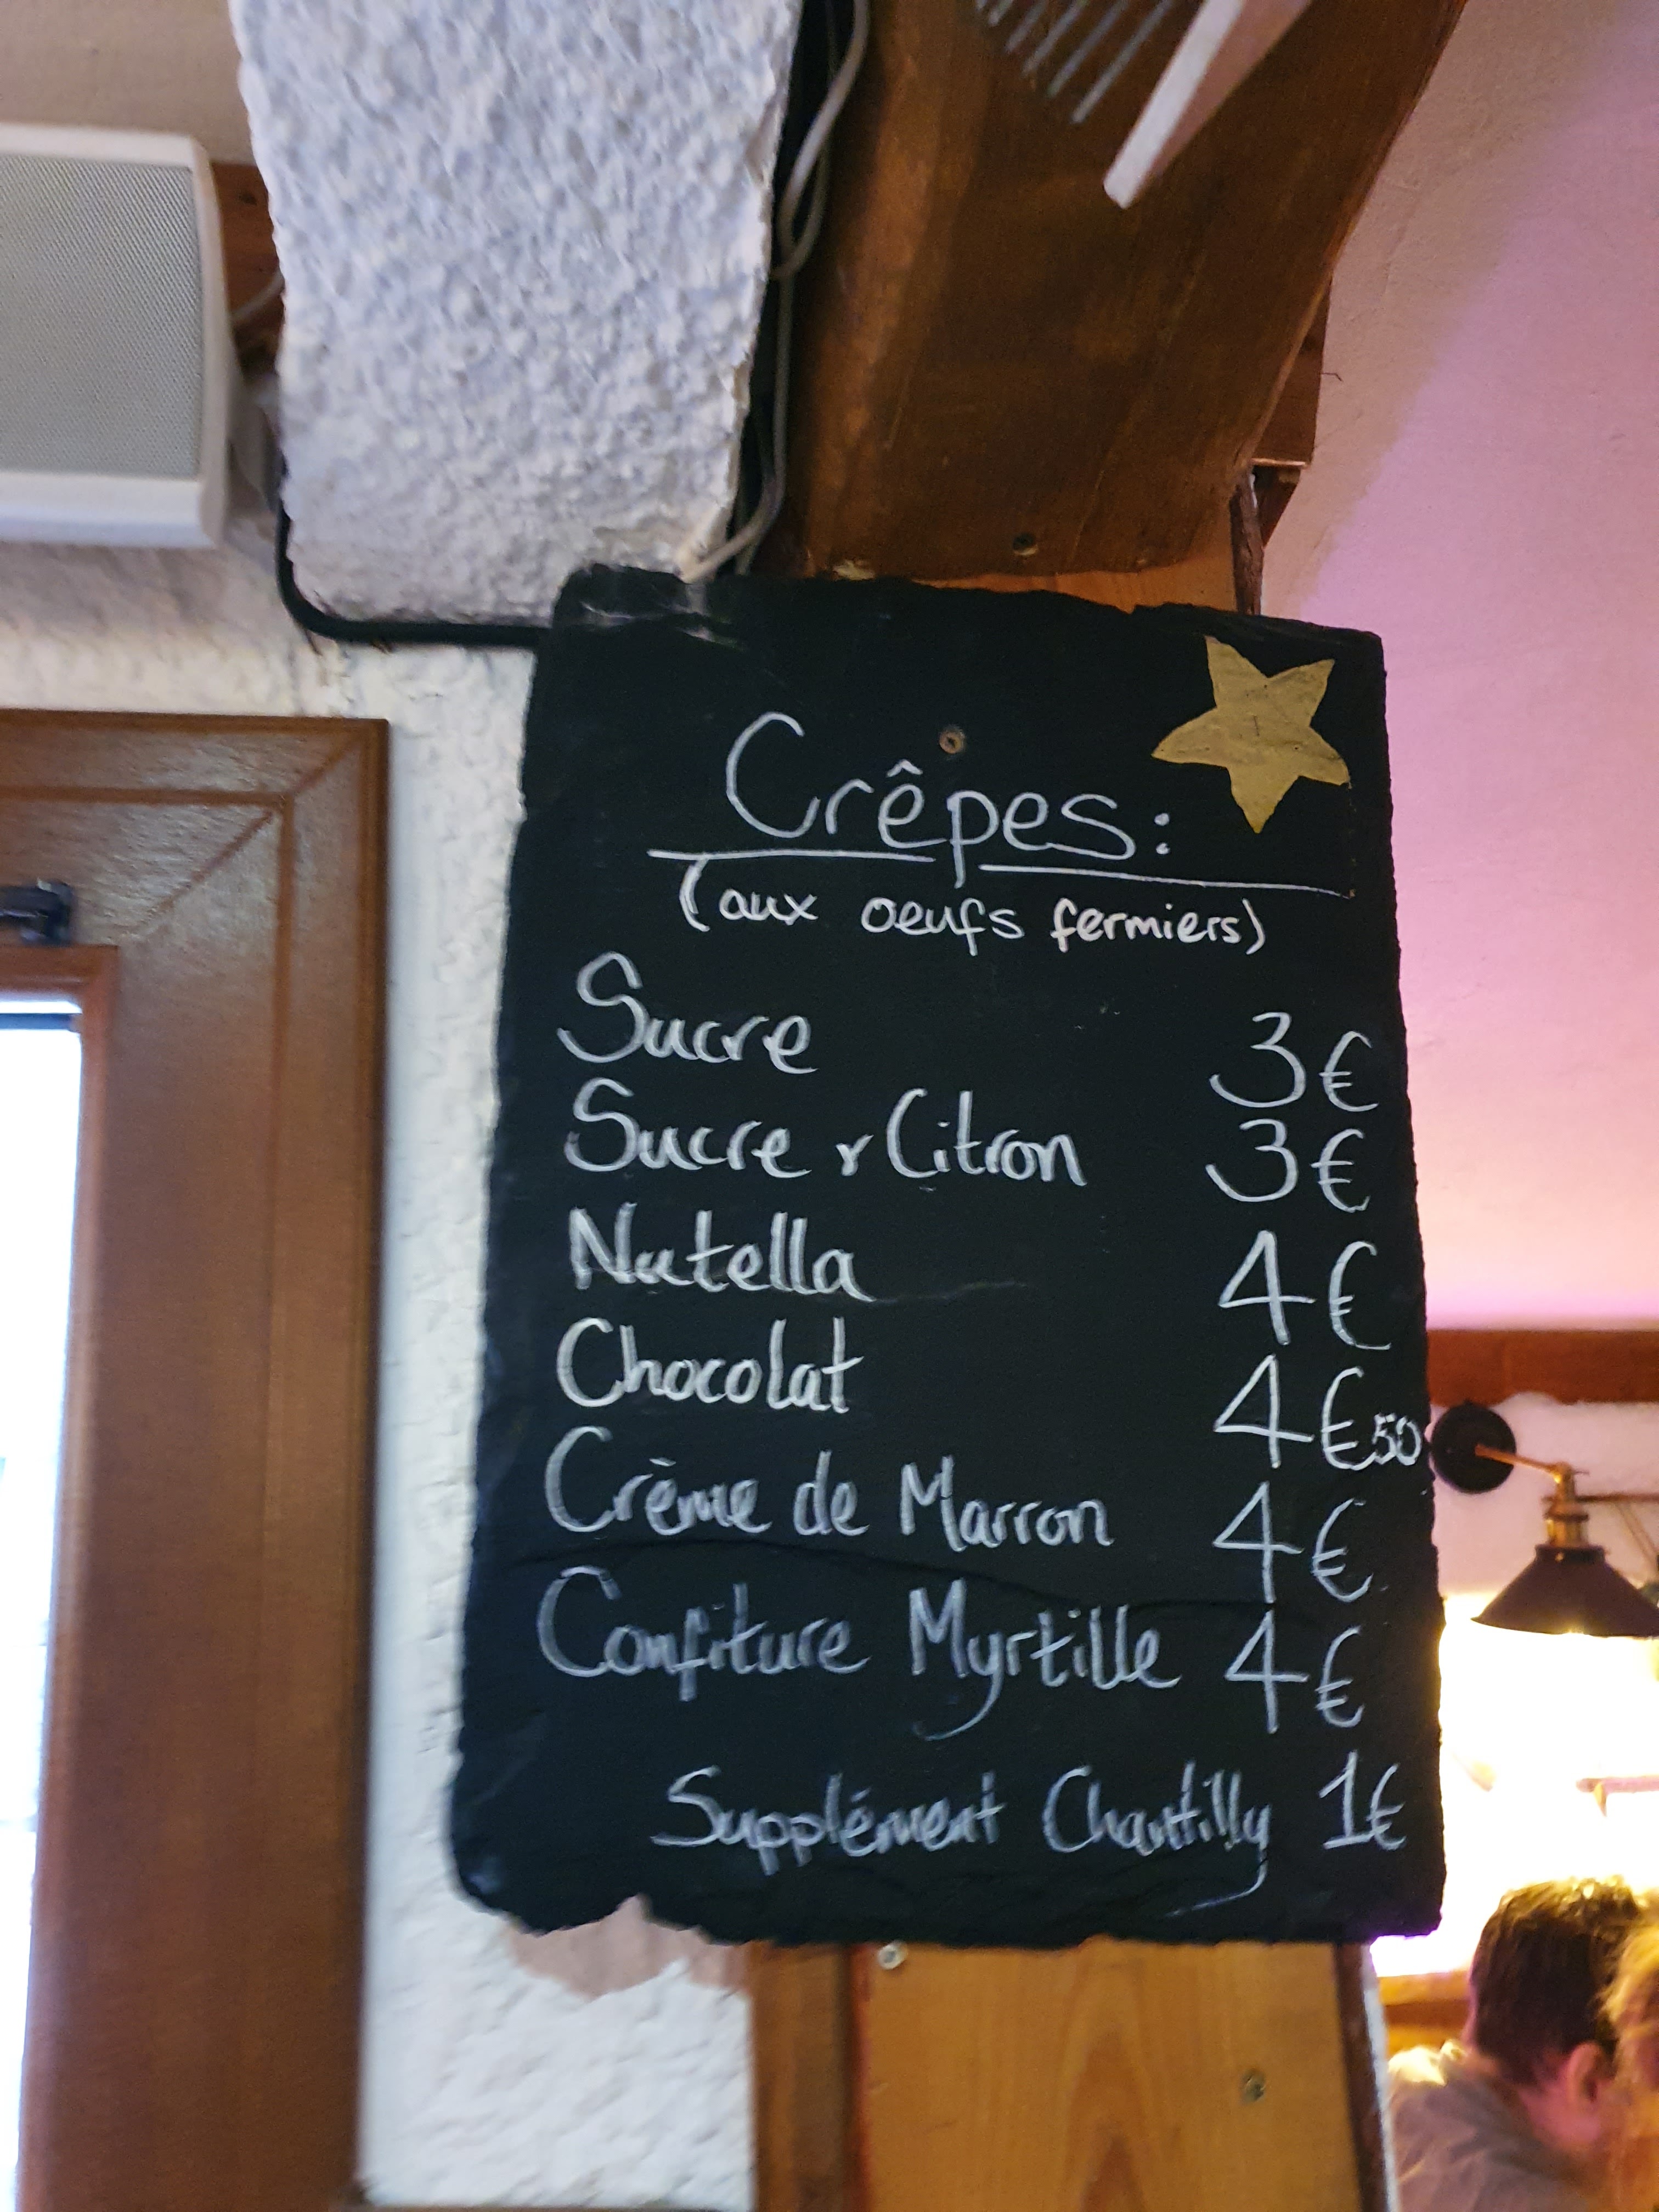 Crêpes:
(aux oeufs fermiers)
Sucre 3€
Sucre + Citron 3€
Nutella 4€
Chocolat 4€50
Crème de Marron 4€
Confiture Myrtille 4€
Supplément Chantilly 1€